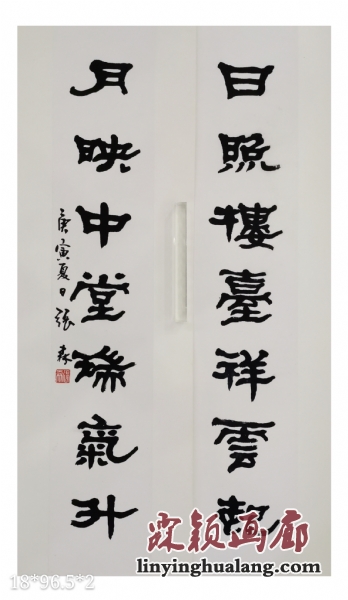 日照樓臺祥雲
月映中堂瑞氣升
庚寅夏日張森
霖颖画廊
linyinghualang.com
18*96.5*2